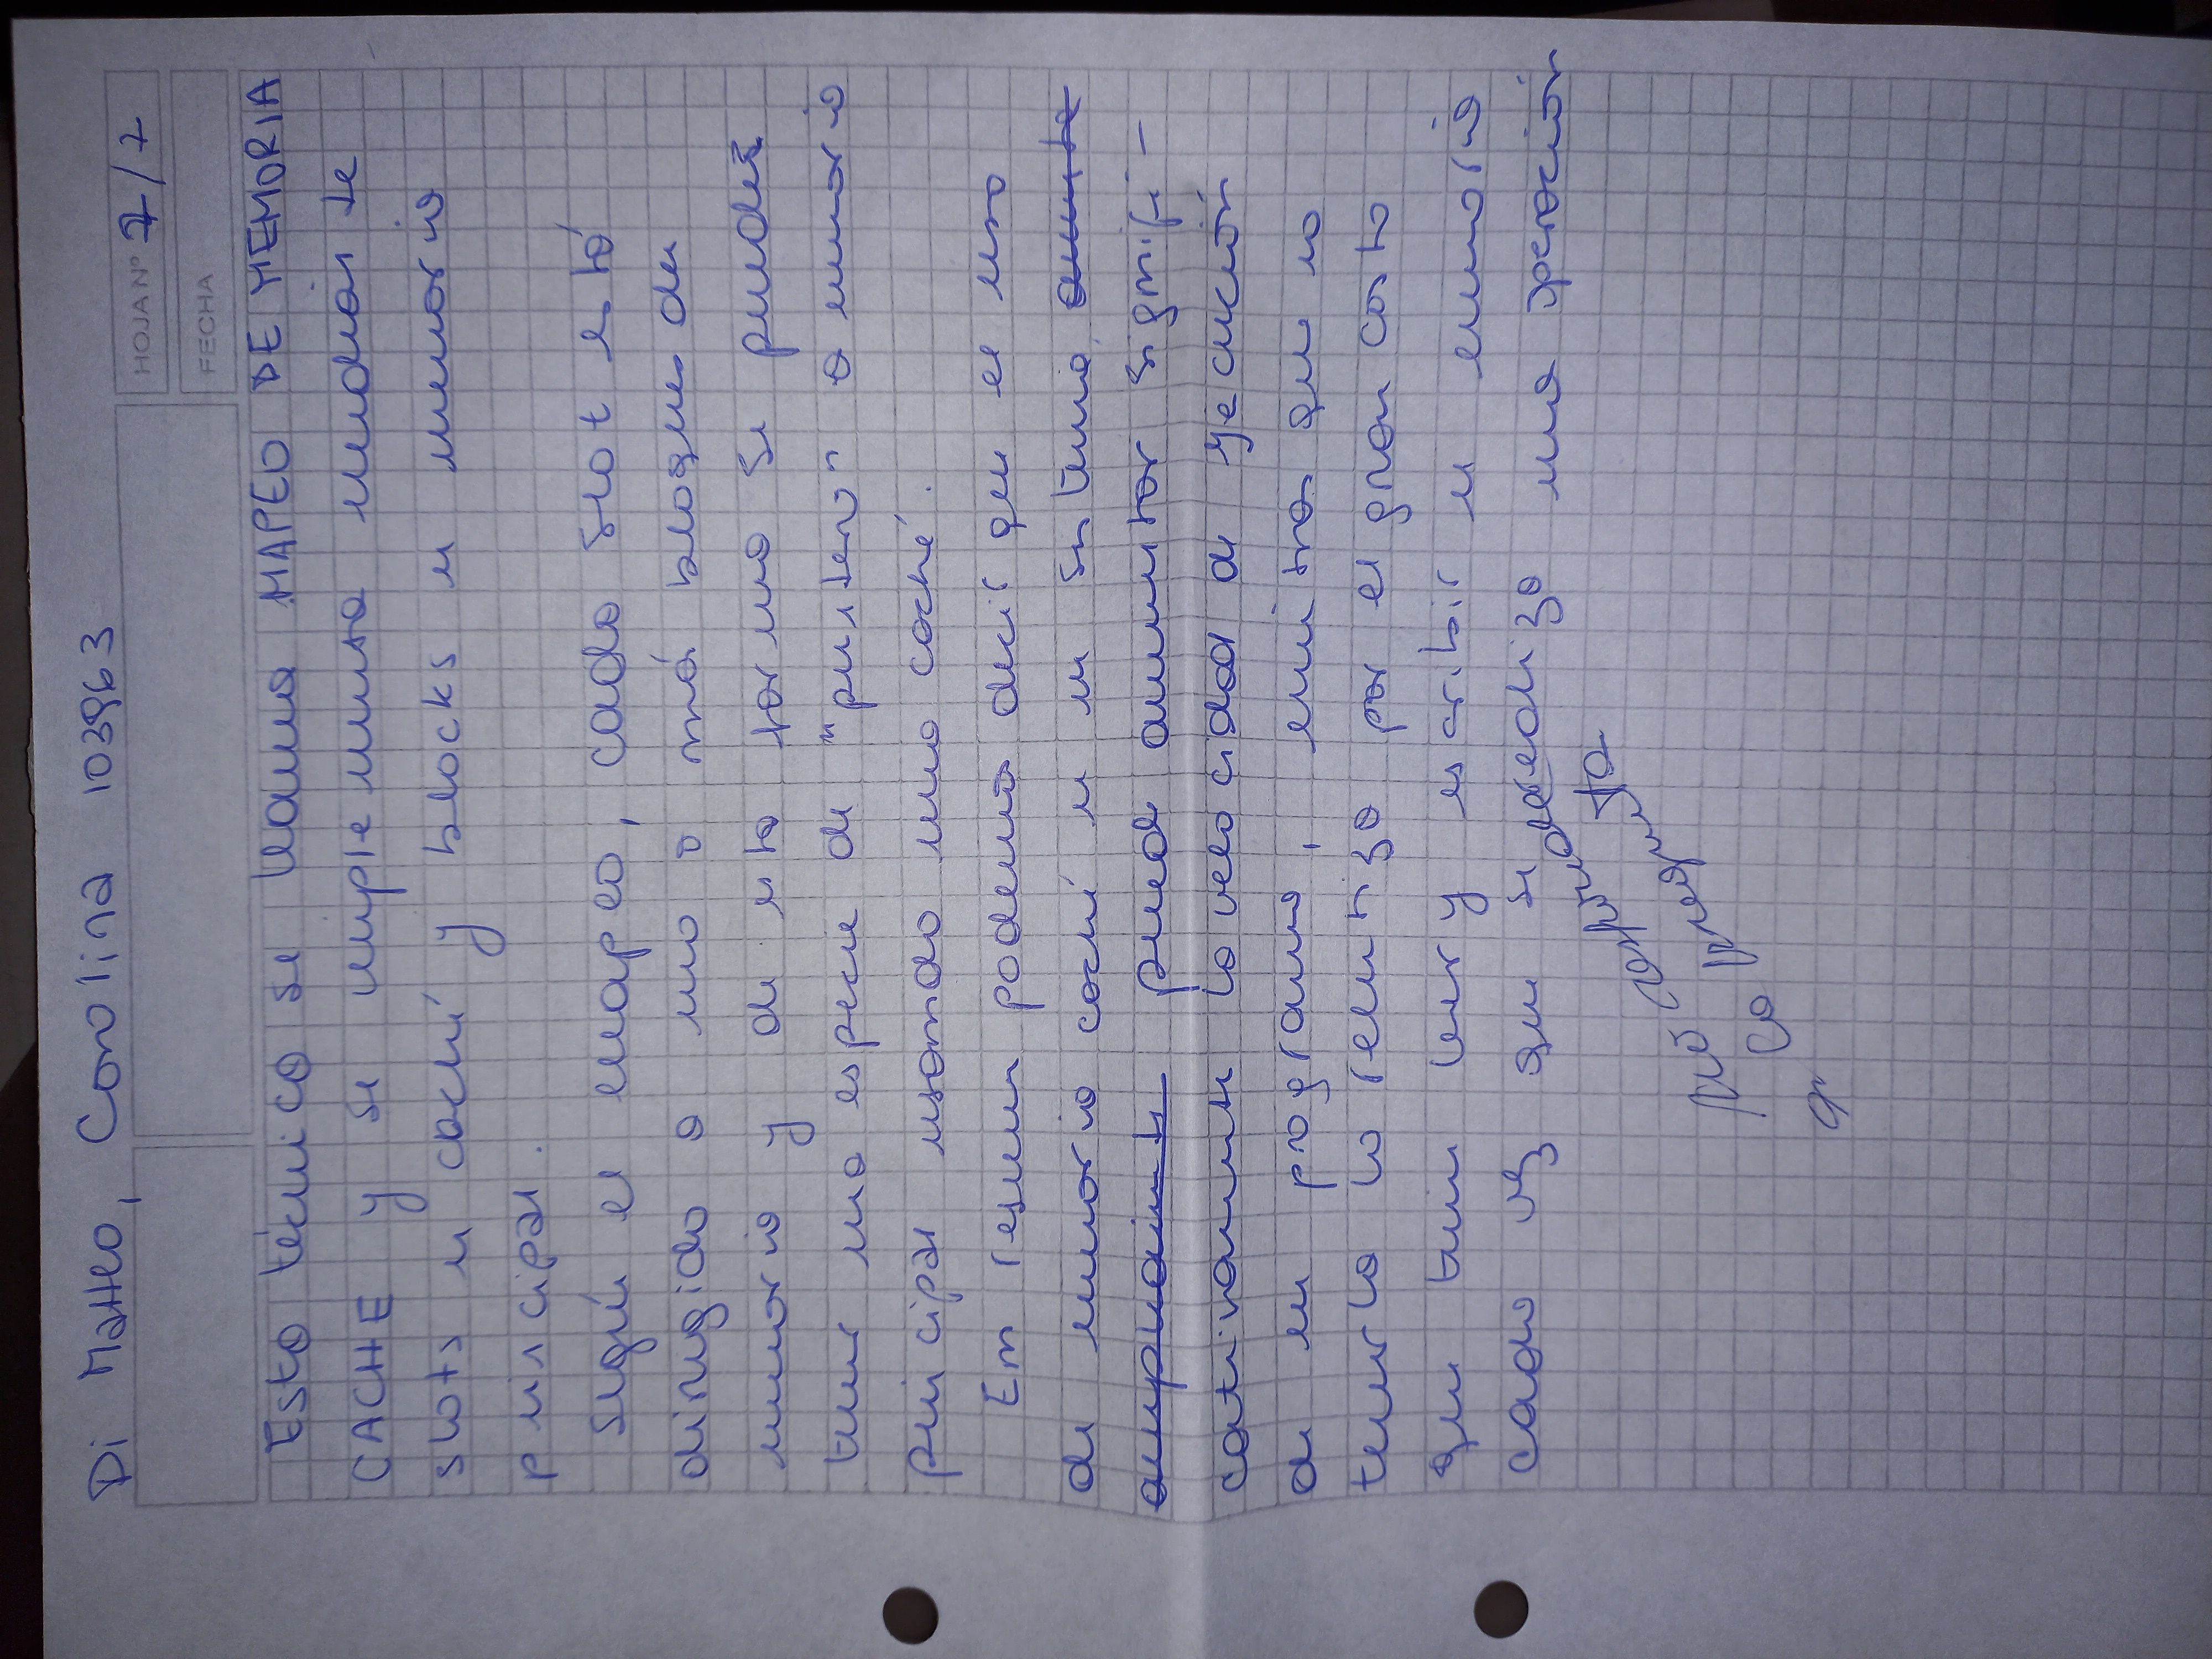 Di Matteo, Carolina 103963
HOJA Nº 7/7
FECHA
Esta técnica se llama MAPEO DE MEMORIA
CACHE y se implementa mediante
slots en caché y blocks en memoria
principal.
Según el mapeo, cada slot está
dirigido a uno o más bloques de
memoria y de esta forma se puede
tener una especie de "puntero" a memoria
principal usando una caché.
En resumen podemos decir que el uso
de memoria caché en un sistema aumenta
ampliamente puede aumentar signifi-
cativamente la velocidad de ejecución
de un programa, mientras que no
tenerla lo ralentiza por el gran costo
que tiene leer y escribir en memoria
cada vez que se realiza una operación
No responde
a la pregunta